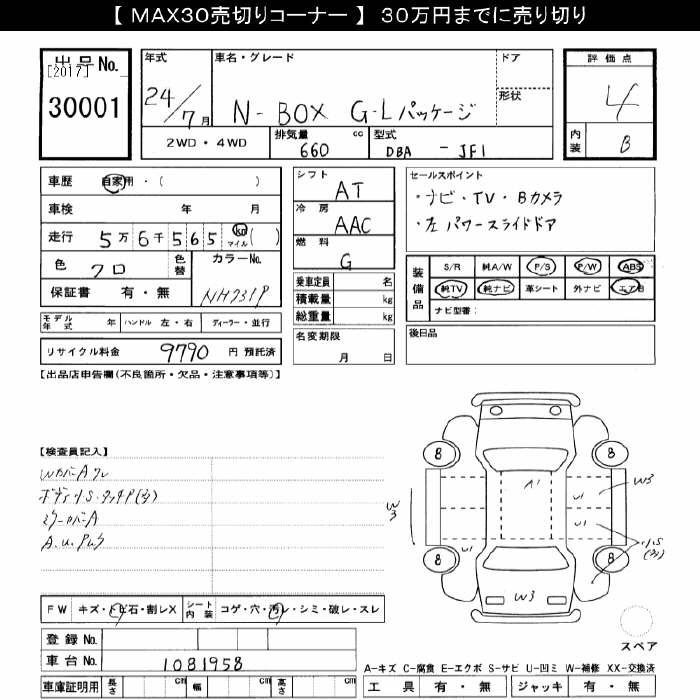 【 MAX30売切りコーナー 】 30万円までに売り切り
出品 No.
[2017]
30001
年式
24/7月
車名・グレード
N-BOX G-Lパッケージ
ドア
形状
2WD・4WD
排気量 cc
660
型式
DBA - JF1
評価点
4
内装
B
車歴 自家用・( )
車検 年 月
走行 5万6千565 km マイル ( )
色 クロ
色替
カラーNo.
NH731P
保証書 有・無
モデル年式 年
ハンドル 左・右
ディーラー・並行
リサイクル料金 9790 円 預託済
シフト
AT
冷房
AAC
燃料
G
乗車定員 名
積載量 kg
総重量 kg
名変期限
月 日
セールスポイント
・ナビ・TV・Bカメラ
・左 パワースライドドア
装備品
S/R 純A/W P/S P/W ABS
純TV 純ナビ 革シート 外ナビ エアB
ナビ型番:
後日品
【出品店申告欄(不良箇所・欠品・注意事項等)】
【検査員記入】
WカバーAワレ
ミラーカバーA
8 8
A1
U1
W3
W3
U1
U1
8 8
W3
FW キズ・トビ石・割レX
シート内装 コゲ・穴・汚レ・シミ・破レ・スレ
登録 No.
車台 No. 1081958
車庫証明用 長さ cm 幅 cm 高さ cm
スペア
A-キズ C-腐食 E-エクボ S-サビ U-凹ミ W-補修 XX-交換済
工具 有・無 ジャッキ 有・無